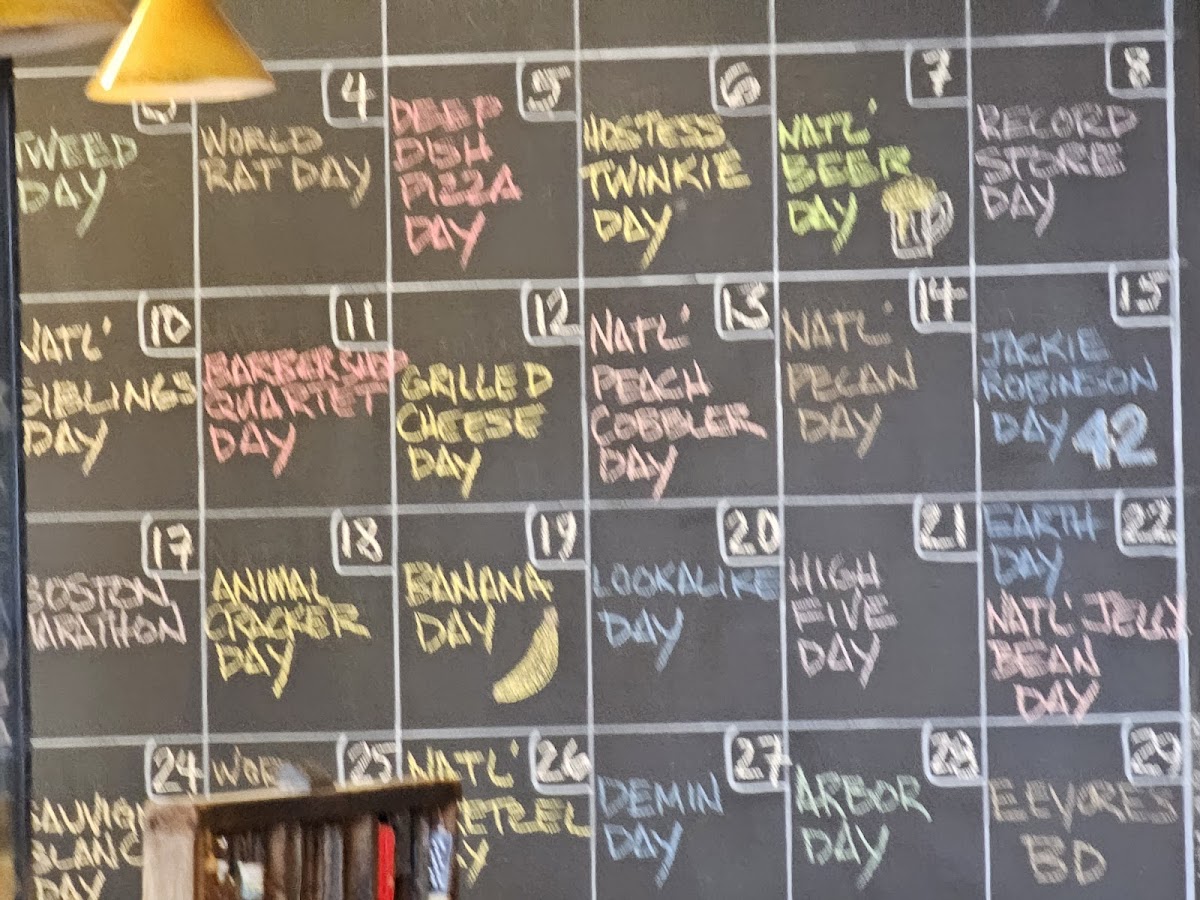 3
TWEED
DAY
4
WORLD
RAT DAY
5
DEEP
DISH
PIZZA
DAY
6
HOSTESS
TWINKIE
DAY
7
NATL'
BEER
DAY
8
RECORD
STORE
DAY
10
NATL'
SIBLINGS
DAY
11
BARBERSHOP
QUARTET
DAY
12
GRILLED
CHEESE
DAY
13
NATL'
PEACH
COBBLER
DAY
14
NATL'
PECAN
DAY
15
JACKIE
ROBINSON
DAY 42
17
BOSTON
MARATHON
18
ANIMAL
CRACKER
DAY
19
BANANA
DAY
20
LOOKALIKE
DAY
21
HIGH
FIVE
DAY
22
EARTH
DAY
NATL' JELLY
BEAN
DAY
24
SAUVIG
BLANC
DAY
25
WOR
26
NATL'
RETZEL
AY
27
DEMIN
DAY
28
ARBOR
DAY
29
EEYORES
BD